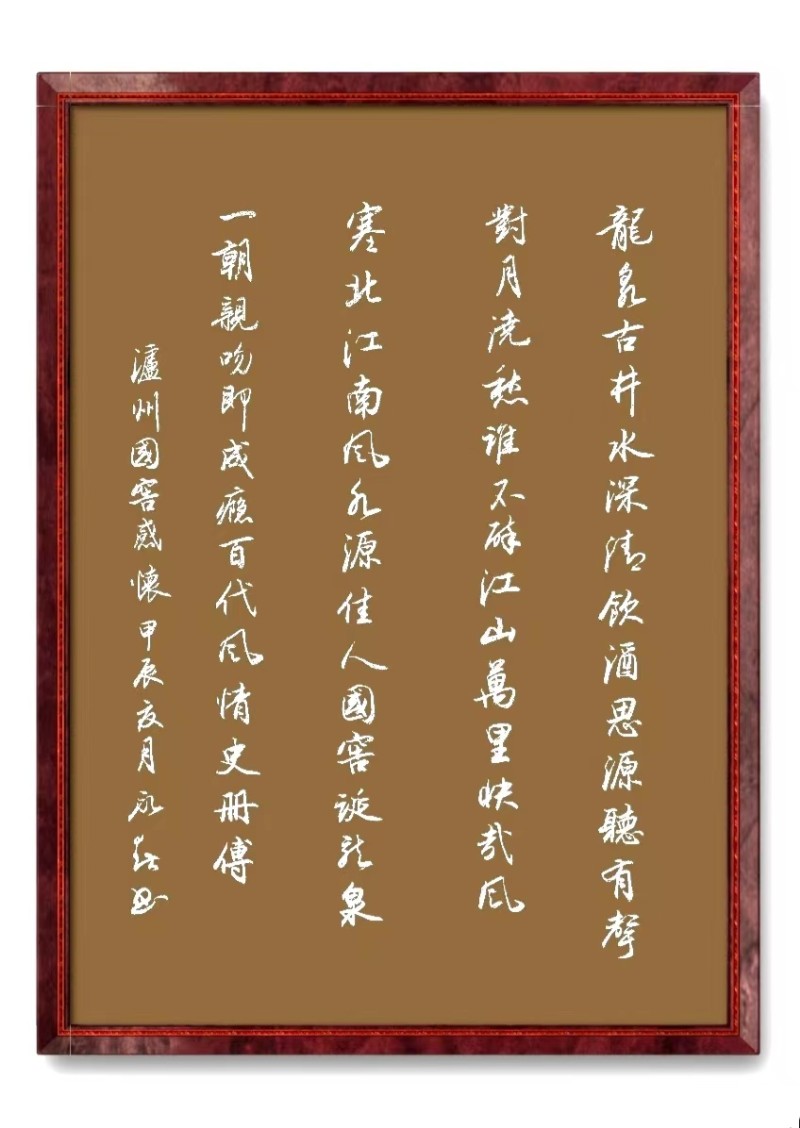 龍泉古井水深清飲酒思源聽有聲
對月澆愁誰不醉江山萬里快哉風
塞北江南風水源佳人國窖誕龍泉
一朝親吻即成癮百代風情史冊傳
瀘州國窖感懷甲辰亥月永春書